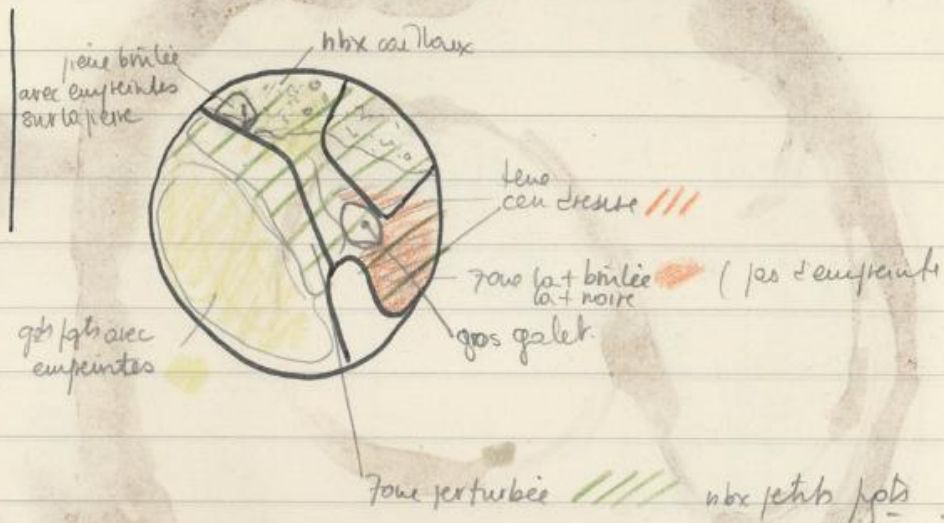 nbx cailloux
pierre brûlée
avec empreintes
sur la pierre
terre
cendreuse
zone la + brûlée
la + noire
( pas d'empreinte
gros galet.
gds fgts avec
empreintes
zone perturbée
nbx petits fgts